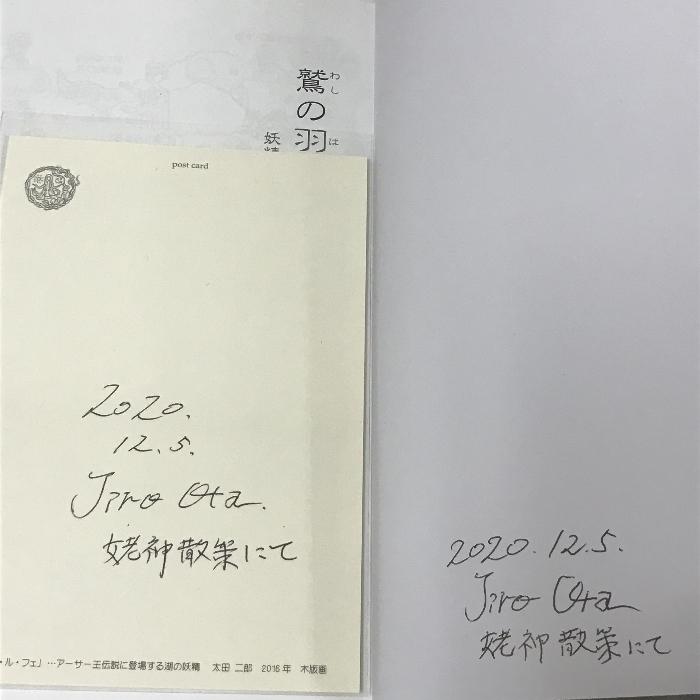 鷲の羽
わし
は
妖精
post card
2020.
12.5.
Jiro Ota.
姥神散策にて
・ル・フェ」…アーサー王伝説に登場する湖の妖精　太田 二郎　2016年　木版画
2020.12.5.
Jiro Ota
姥神散策にて